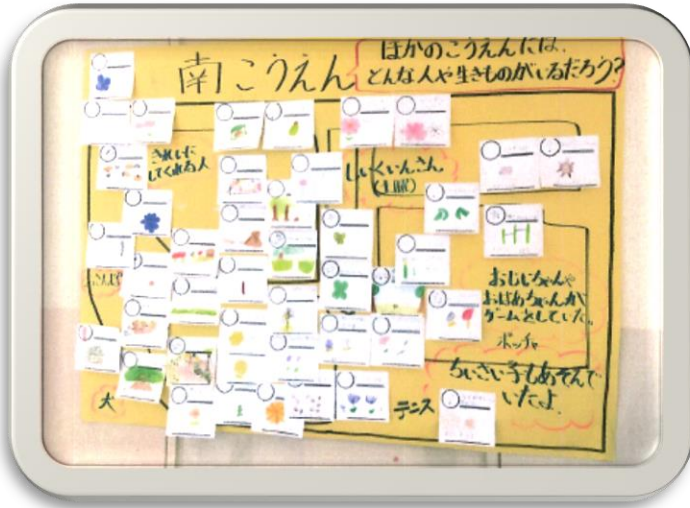 南こうえん
ほかのこうえんには、
どんな人や生きものがいるだろう?
きれいに
してくれる人
しいくいんさん
おじいちゃんや
おばあちゃんが
ゲームをしていた。
ボッチャ
ちいさい子もあそんで
いたよ。
テニス
犬